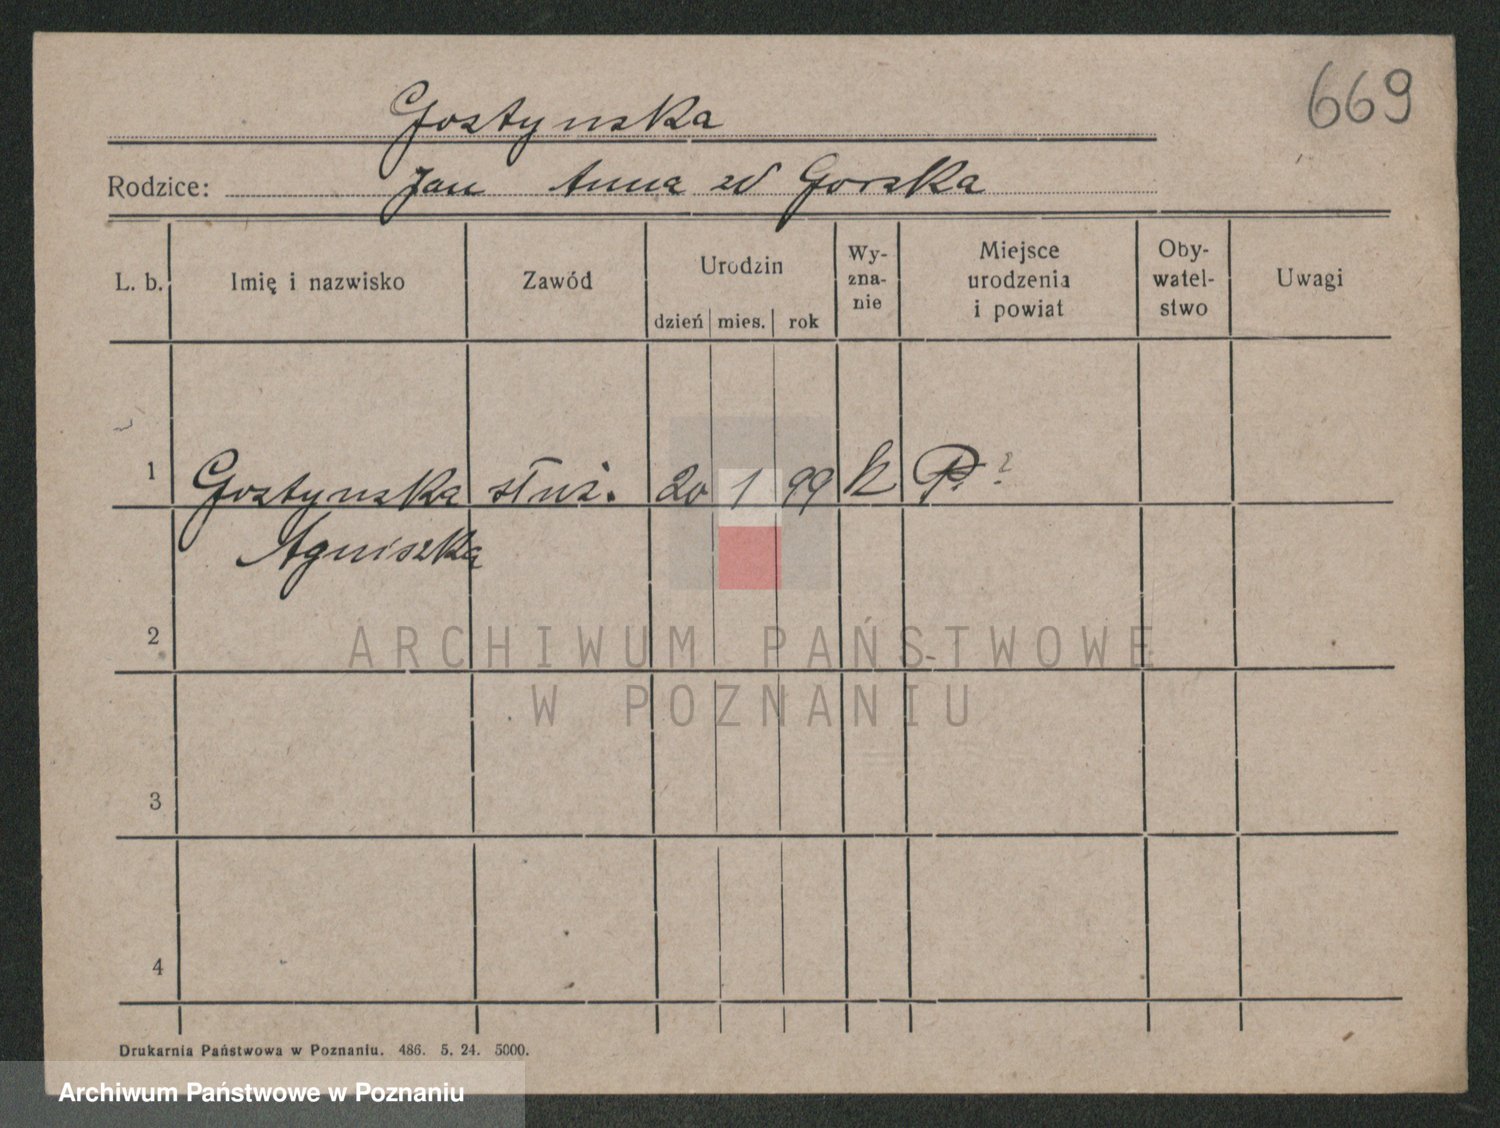 669
Gostynska
Rodzice: Jan Anna zd Gorska
L. b. Imię i nazwisko Zawód Urodzin dzień mies. rok Wy-zna-nie Miejsce urodzenia i powiat Oby-watel-stwo Uwagi
1 Gostynska służ. 20 1 99 k P. ?
Agniszka
2
3
4
ARCHIWUM PAŃSTWOWE
W POZNANIU
Drukarnia Państwowa w Poznaniu. 486. 5. 24. 5000.
Archiwum Państwowe w Poznaniu